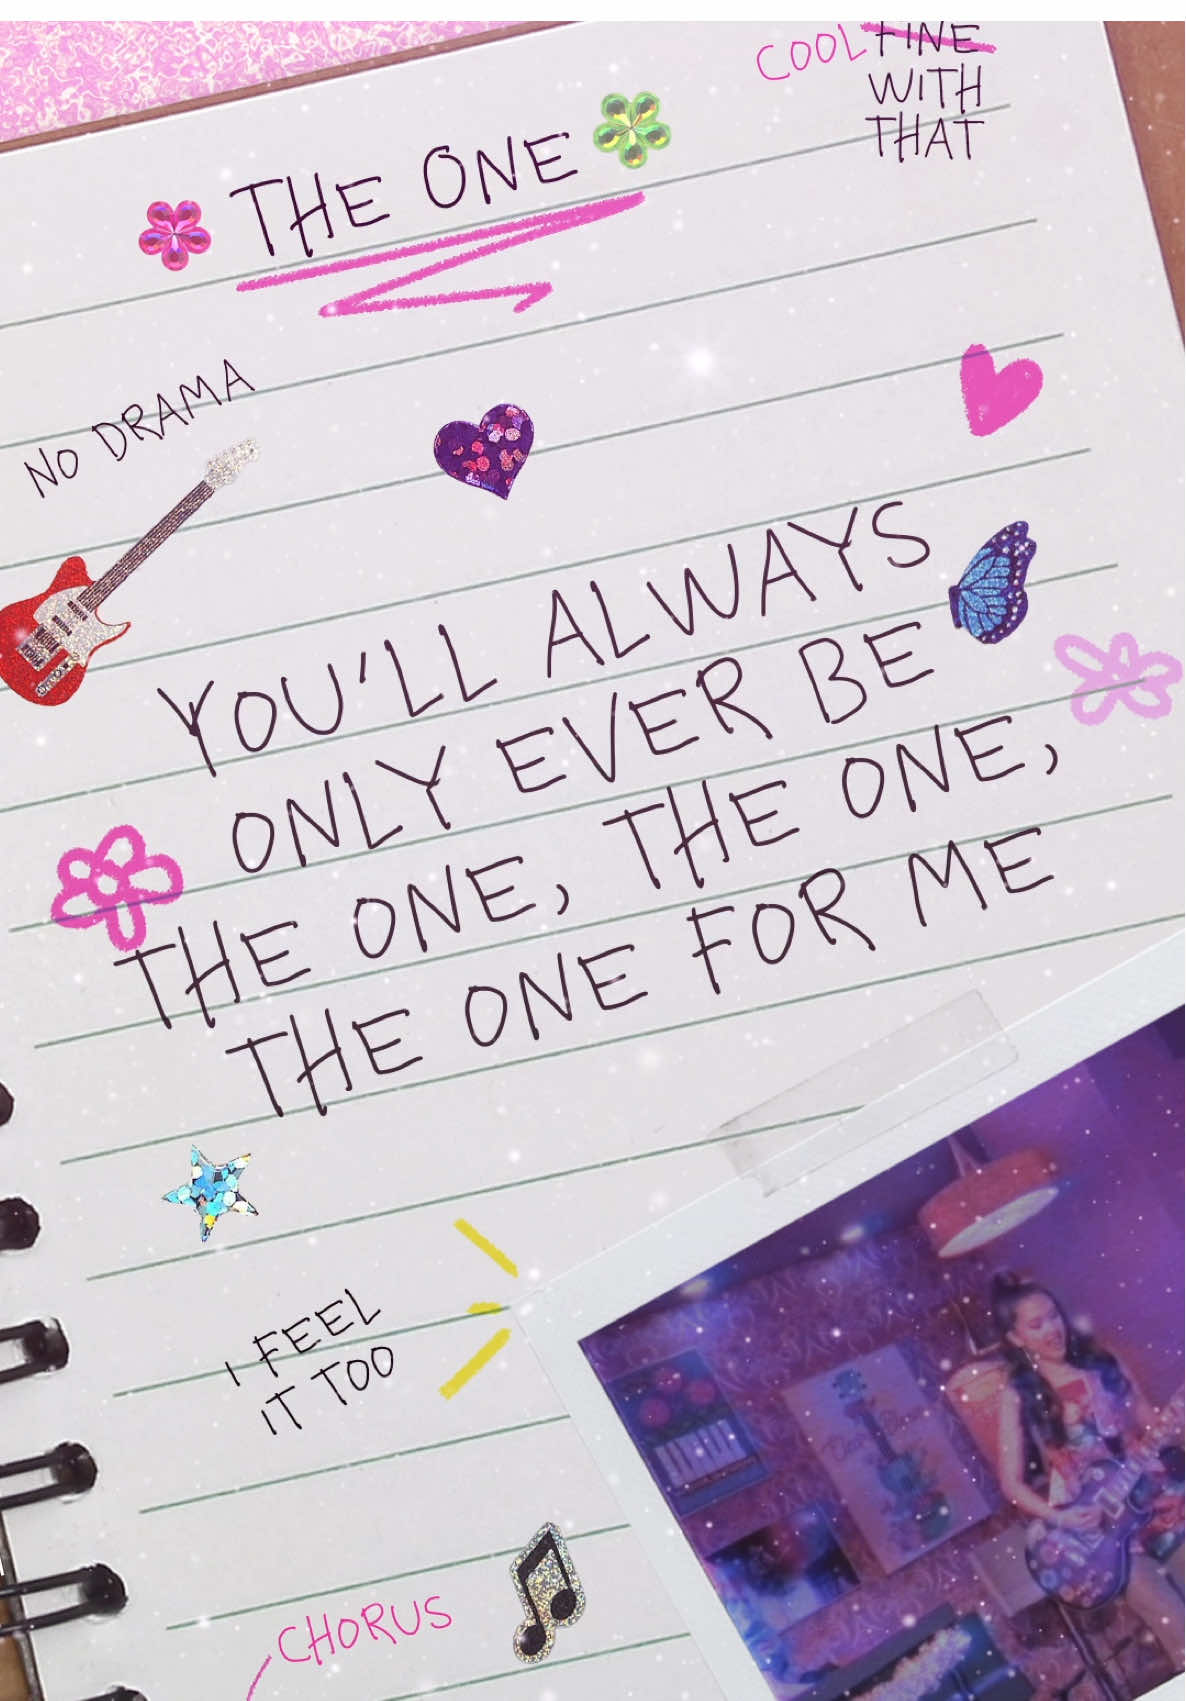 COOL FINE
WITH
THAT
THE ONE
NO DRAMA
YOU'LL ALWAYS
ONLY EVER BE
THE ONE, THE ONE,
THE ONE FOR ME
I FEEL
IT TOO
CHORUS